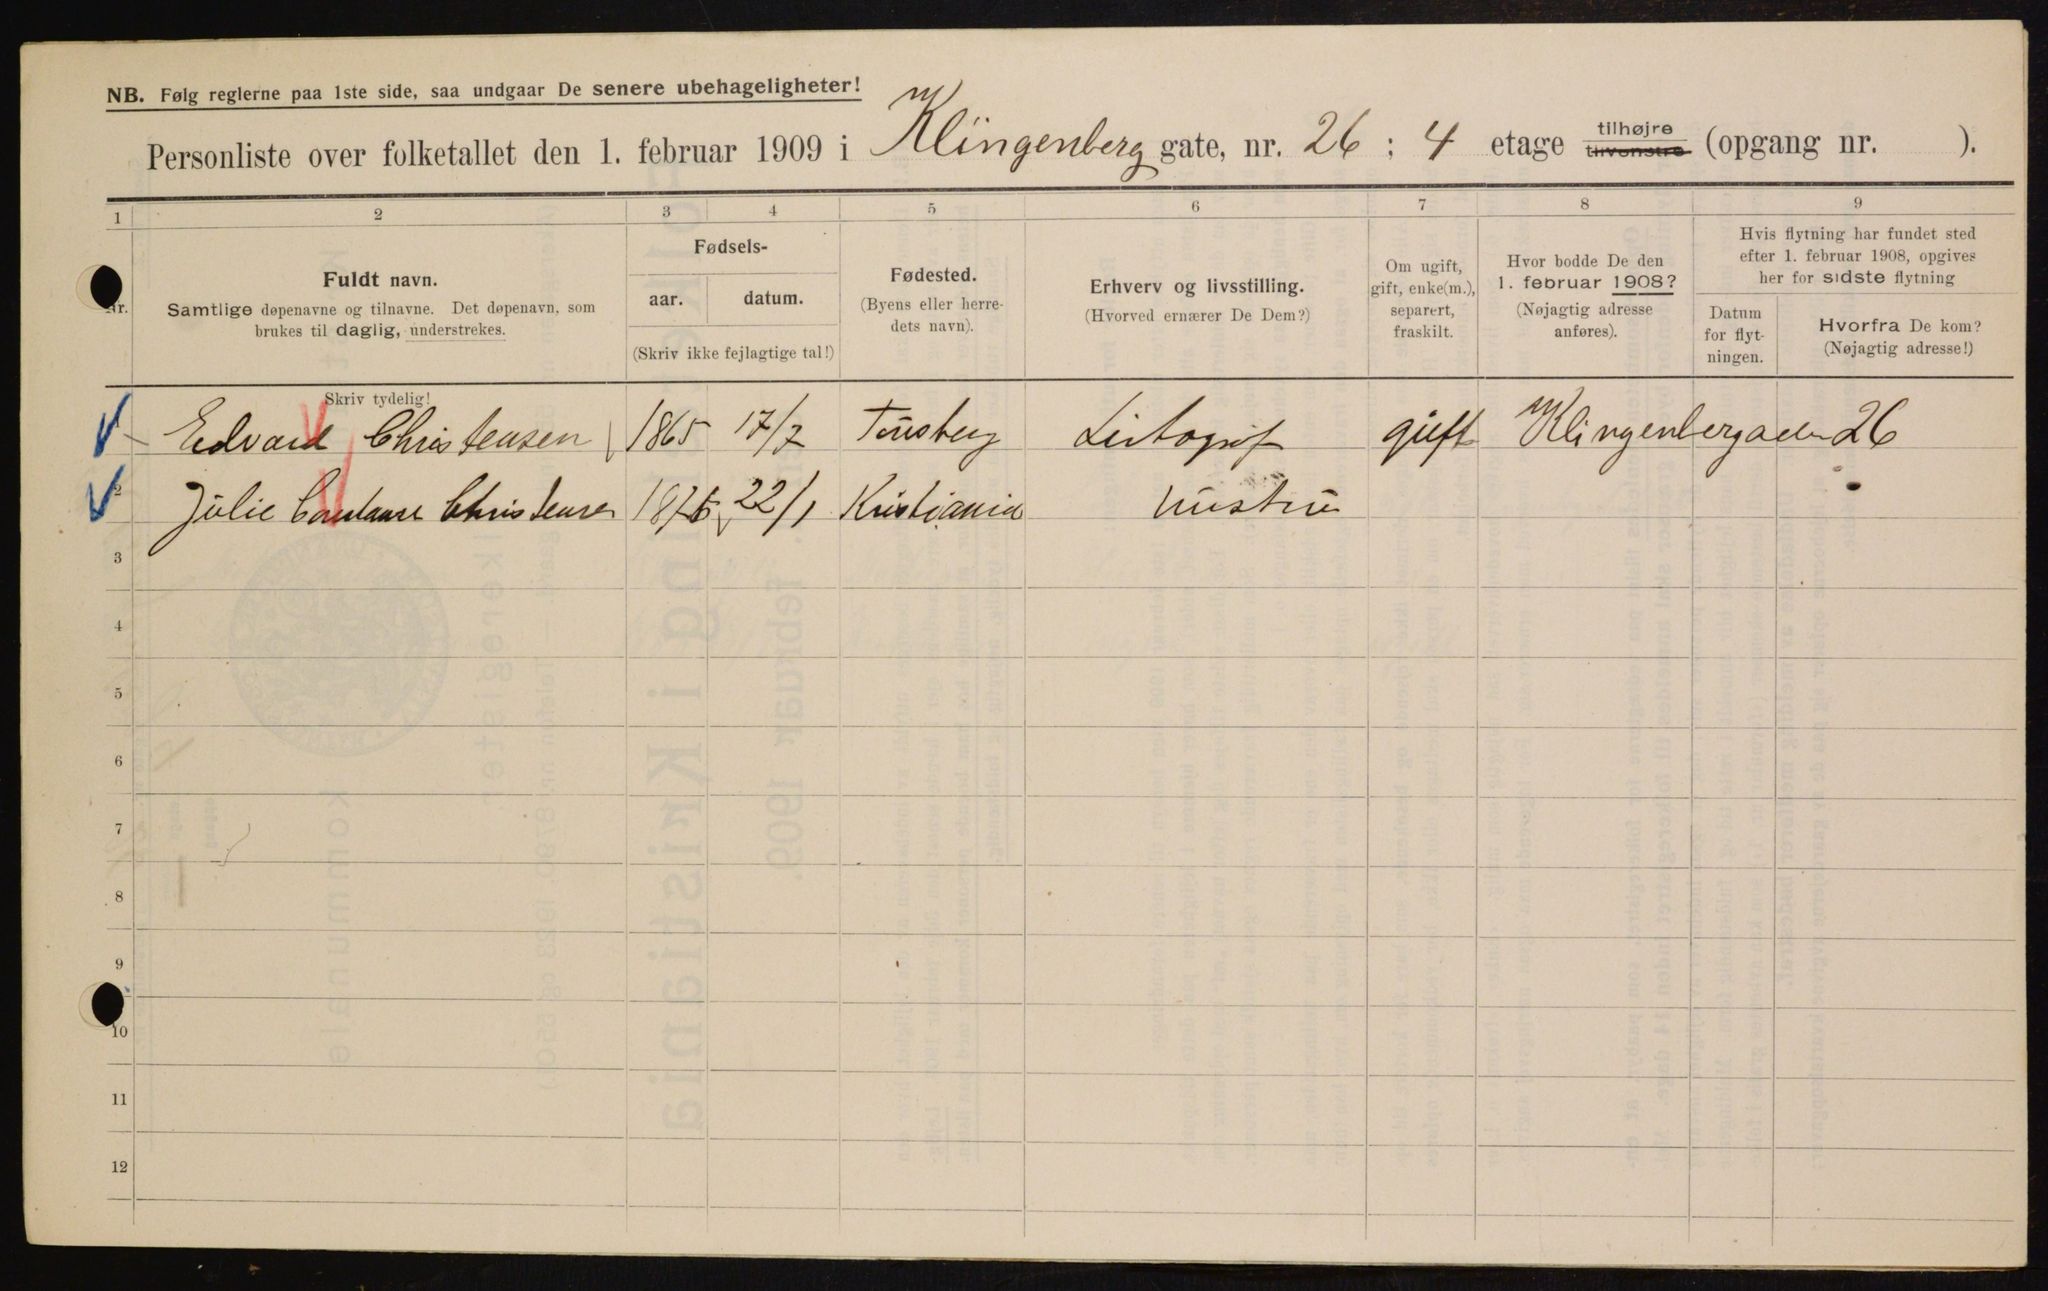 NB. Følg reglerne paa 1ste side, saa undgaar De senere ubehageligheter!
Personliste over folketallet den 1. februar 1909 i Klingenberg gate, nr. 26 ; 4 etage tilhøjre tilvenstre (opgang nr. ).
1 2 3 4 5 6 7 8 9
Nr.
Fuldt navn.
Samtlige døpenavne og tilnavne. Det døpenavn, som
brukes til daglig, understrekes.
Fødsels-
aar. datum.
(Skriv ikke fejlagtige tal!)
Fødested.
(Byens eller herre-
dets navn).
Erhverv og livsstilling.
(Hvorved ernærer De Dem?)
Om ugift,
gift, enke(m.),
separert,
fraskilt.
Hvor bodde De den
1. februar 1908?
(Nøjagtig adresse
anføres).
Hvis flytning har fundet sted
efter 1. februar 1908, opgives
her for sidste flytning
Datum
for flyt-
ningen.
Hvorfra De kom?
(Nøjagtig adresse!)
Skriv tydelig!
Edvard Christensen 1865 17/7 Tønsberg Litograf gift Klingenberggaden 26
2 Julie Constanse Christensen 22/1 Kristiania Hustru
3
4
5
6
7
8
9
10
11
12